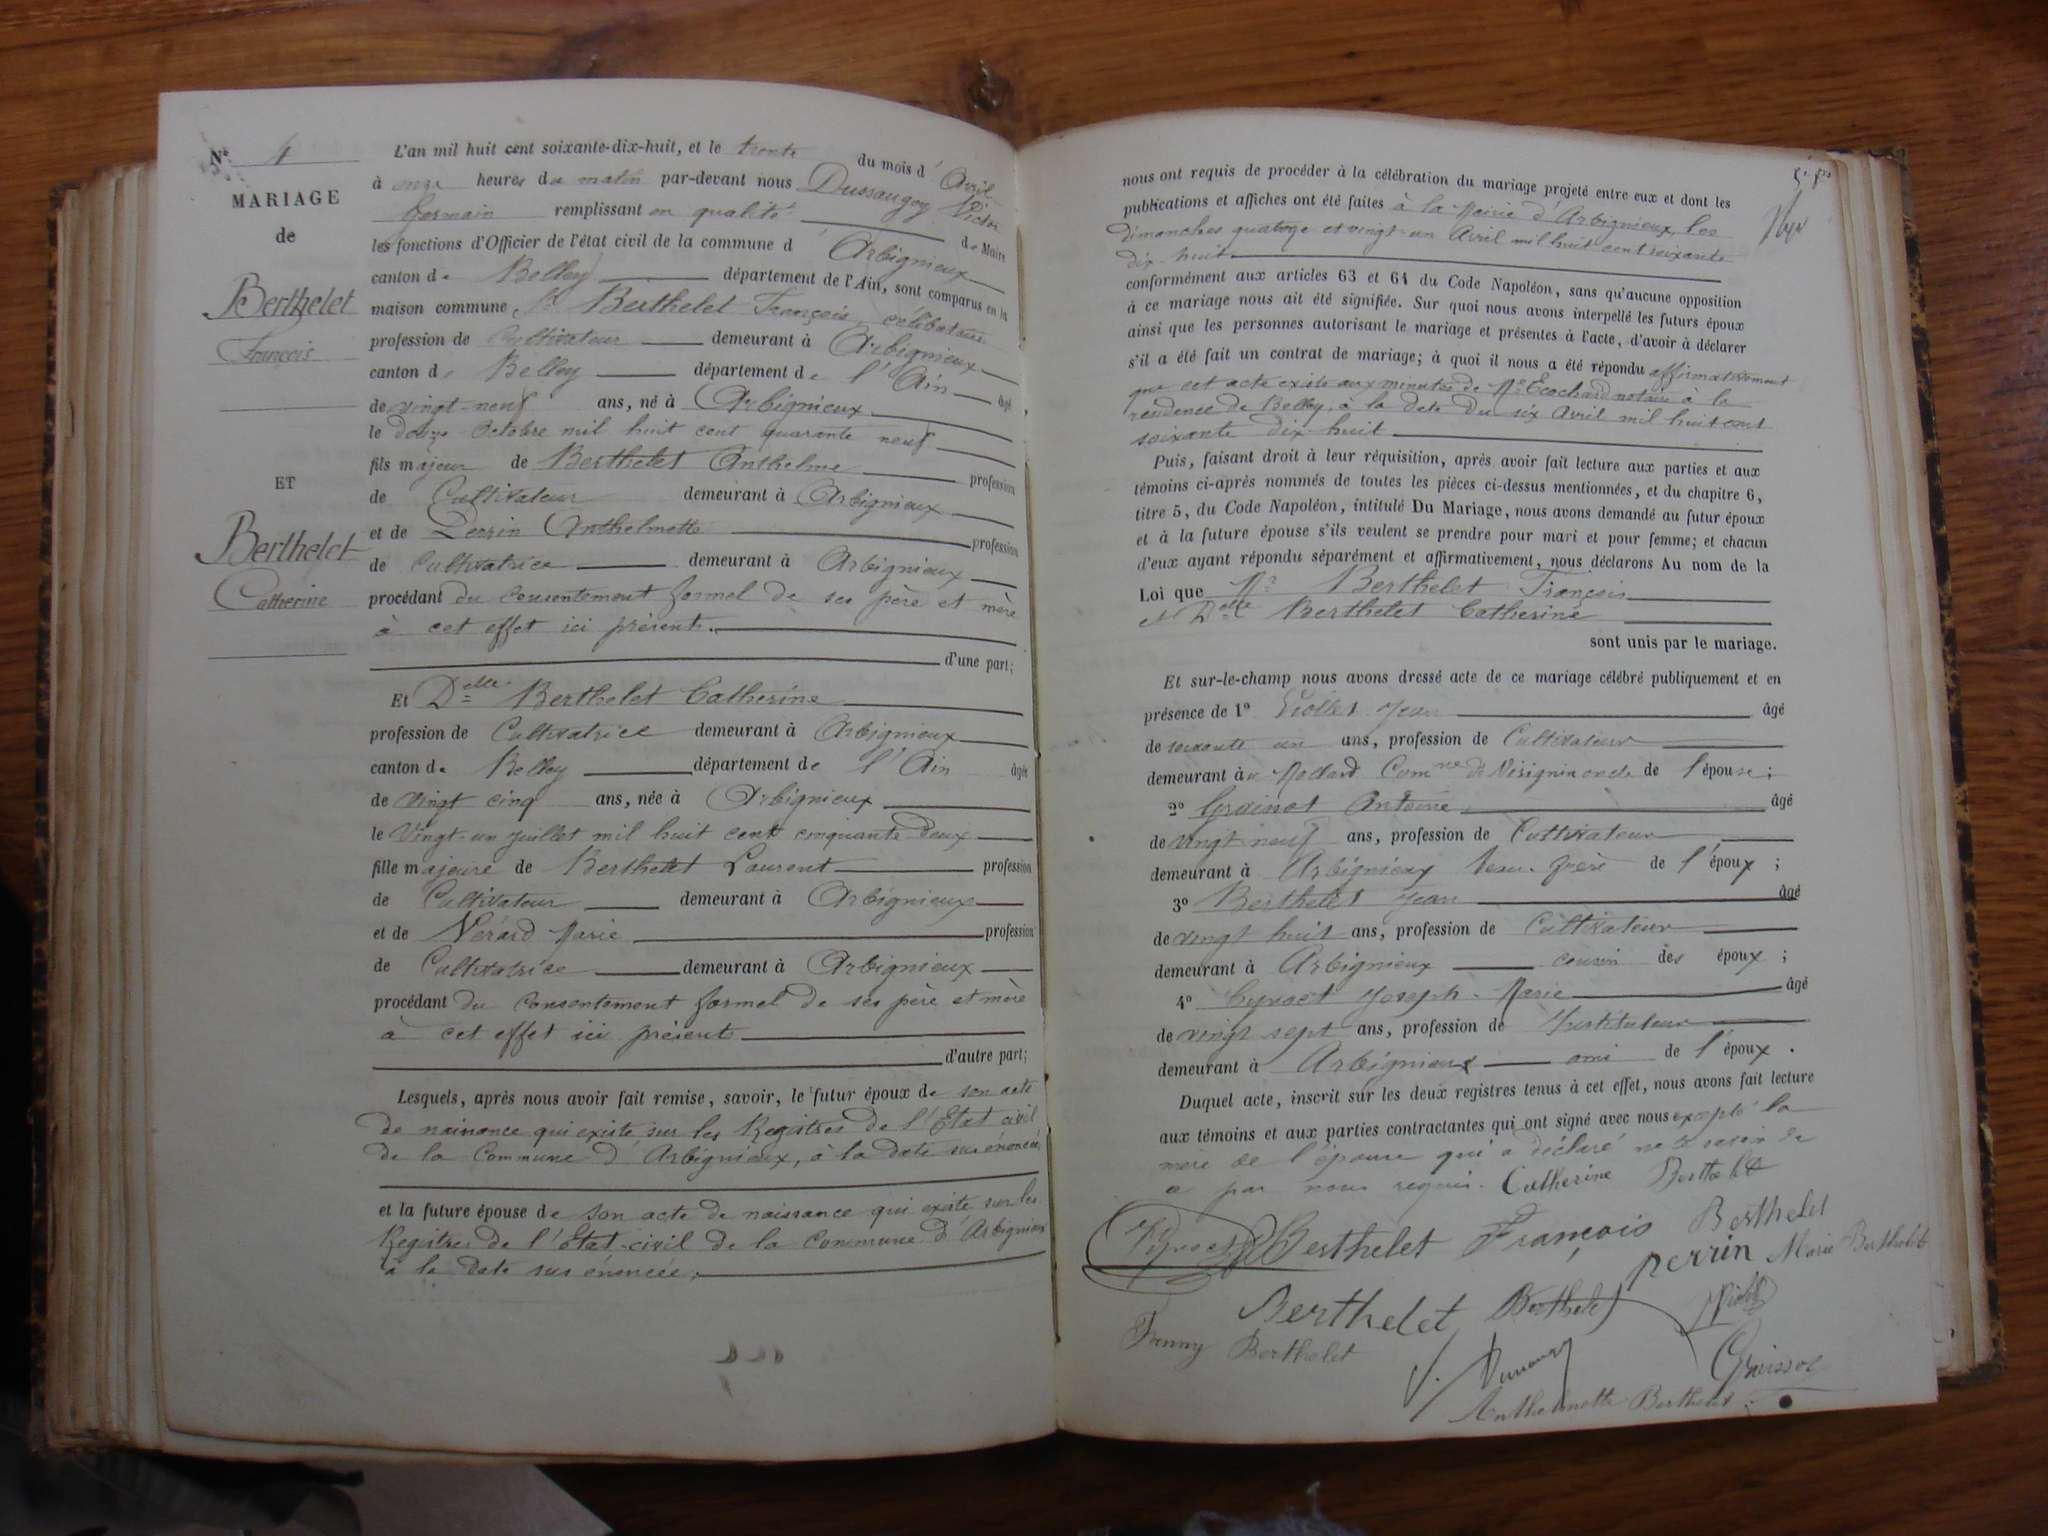 N° 4
MARIAGE
de
Berthelet
François
ET
Berthelet
Catherine
L'an mil huit cent soixante-dix-huit, et le trente du mois d'Avril
à onze heures du matin par-devant nous Dussaugey Victor
Germain remplissant en qualité de Maire
les fonctions d'Officier de l'état civil de la commune d'Arbignieux
canton de Belley département de l'Ain, sont comparus en la
maison commune Mr Berthelet François, célibataire
profession de Cultivateur demeurant à Arbignieux
canton de Belley département de l'Ain âgé
de vingt-neuf ans, né à Arbignieux
le douze Octobre mil huit cent quarante neuf
fils majeur de Berthelet Anthelme profession
de Cultivateur demeurant à Arbignieux
et de Perrin Anthelmette profession
de Cultivatrice demeurant à Arbignieux
procédant du consentement formel de ses père et mère
à cet effet ici présents.
d'une part;
Et Delle Berthelet Catherine
profession de Cultivatrice demeurant à Arbignieux
canton de Belley département de l'Ain âgée
de vingt cinq ans, née à Arbignieux
le Vingt-un juillet mil huit cent cinquante deux
fille majeure de Berthelet Laurent profession
de Cultivateur demeurant à Arbignieux
et de Nérard Marie profession
de Cultivatrice demeurant à Arbignieux
procédant du consentement formel de ses père et mère
à cet effet ici présents
d'autre part;
Lesquels, après nous avoir fait remise, savoir, le futur époux de son acte
de naissance qui existe sur les Registres de l'Etat civil
de la Commune d'Arbignieux, à la date sus énoncée
et la future épouse de son acte de naissance qui existe sur les
Registres de l'Etat-civil de la Commune d'Arbignieux
à la date sus énoncée;
nous ont requis de procéder à la célébration du mariage projeté entre eux et dont les
publications et affiches ont été faites à la Mairie d'Arbignieux, les
dimanches quatorze et vingt-un Avril mil huit cent soixante
dix-huit
conformément aux articles 63 et 64 du Code Napoléon, sans qu'aucune opposition
à ce mariage nous ait été signifiée. Sur quoi nous avons interpellé les futurs époux
ainsi que les personnes autorisant le mariage et présentes à l'acte, d'avoir à déclarer
s'il a été fait un contrat de mariage; à quoi il nous a été répondu affirmativement
que cet acte existe aux minutes de Me Ecochard notaire à la
résidence de Belley, à la date du six Avril mil huit cent
soixante dix-huit
Puis, faisant droit à leur réquisition, après avoir fait lecture aux parties et aux
témoins ci-après nommés de toutes les pièces ci-dessus mentionnées, et du chapitre 6,
titre 5, du Code Napoléon, intitulé Du Mariage, nous avons demandé au futur époux
et à la future épouse s'ils veulent se prendre pour mari et pour femme; et chacun
d'eux ayant répondu séparément et affirmativement, nous déclarons Au nom de la
Loi que Mr Berthelet François
et Delle Berthelet Catherine
sont unis par le mariage.
Et sur-le-champ nous avons dressé acte de ce mariage célébré publiquement et en
présence de 1° Jean âgé
de soixante un ans, profession de Cultivateur
demeurant à Comne de oncle de l'épouse;
2° Antoine âgé
de vingt-neuf ans, profession de Cultivateur
demeurant à Arbignieux beau-frère de l'époux;
3° Berthelet Jean âgé
de vingt huit ans, profession de Cultivateur
demeurant à Arbignieux cousin des époux;
4° Joseph-Marie âgé
de vingt sept ans, profession de Instituteur
demeurant à Arbignieux ami de l'époux.
Duquel acte, inscrit sur les deux registres tenus à cet effet, nous avons fait lecture
aux témoins et aux parties contractantes qui ont signé avec nous excepté la
mère de l'épouse qui a déclaré ne savoir de
ce par nous requis. Catherine Berthelet
Berthelet François Berthelet
Perrin Marie Berthelet
Berthelet Berthelet
Fanny Berthelet
Anthelmette Berthelet